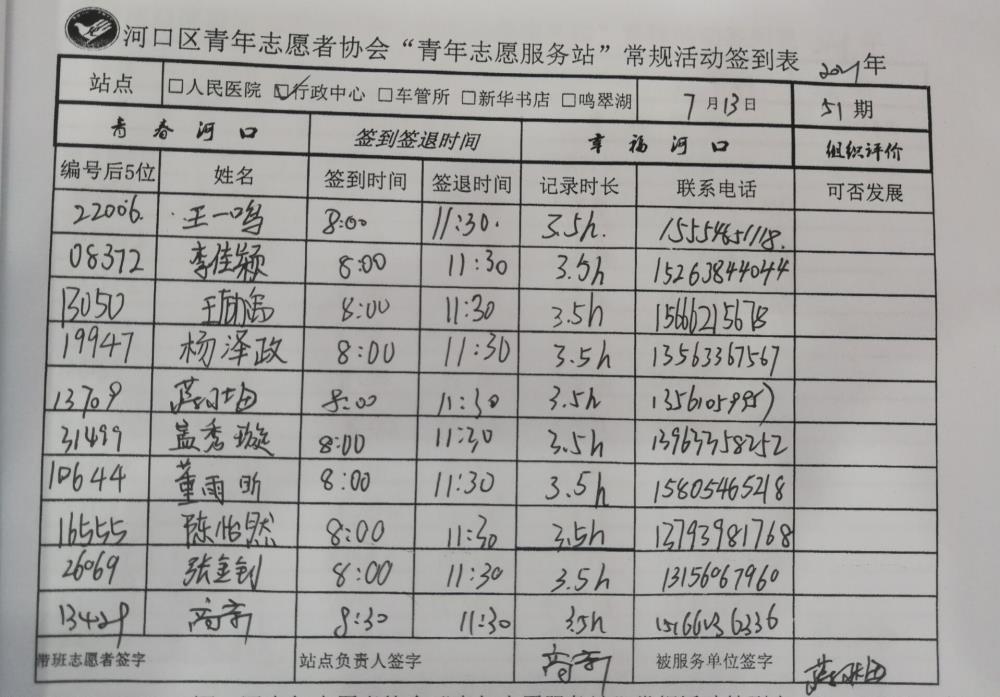 河口区青年志愿者协会“青年志愿服务站”常规活动签到表 年
站点 □人民医院 ☑行政中心 □车管所 □新华书店 □鸣翠湖 7月13日 51期
青春河口 签到签退时间 幸福河口 组织评价
编号后5位 姓名 签到时间 签退时间 记录时长 联系电话 可否发展
22006. 王一鸣 8:00 11:30. 3.5h. 15554651118.
08372 李佳颖 8:00 11:30 3.5h 15263844044
13050 8:00 11:30 3.5h 15666215678
19947 杨泽政 8:00 11:30 3.5h 13563367567
13709 8:00 11:30 3.5h
31499 孟秀璇 8:00 11:30 3.5h 13963358252
10644 董雨昕 8:00 11:30 3.5h 15805465218
16555 陈怡然 8:00 11:30 3.5h 13793981768
26069 张金钊 8:00 11:30 3.5h 13156067960
8:30 11:30 3.5h
带班志愿者签字 站点负责人签字 被服务单位签字